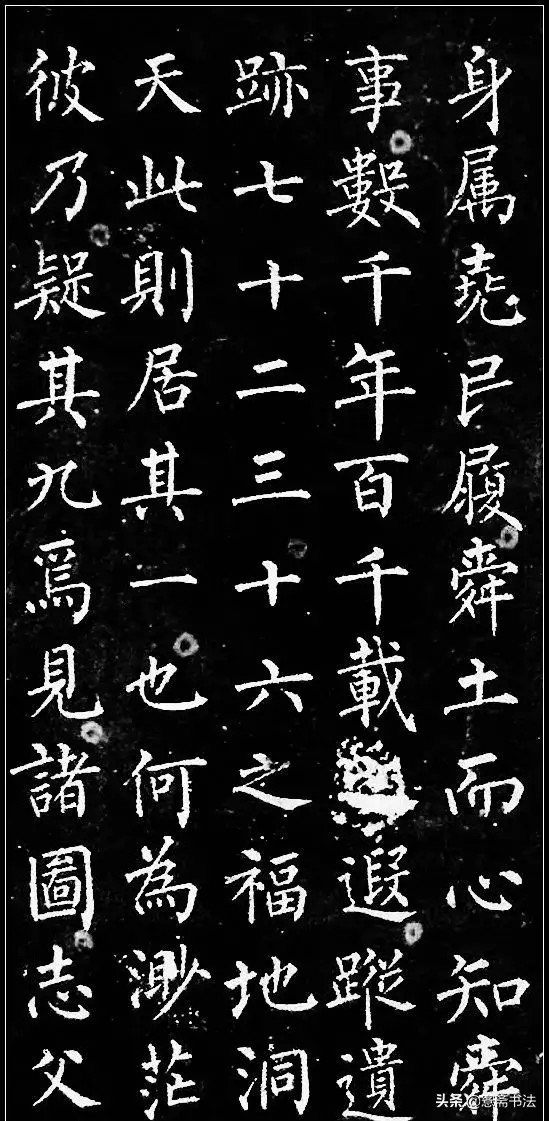 身属堯民履舜土而心知舜
事數千年百千載遐蹤遺
跡七十二三十六之福地洞
天此則居其一也何為渺茫
彼乃疑其九焉見諸圖志父
头条@慧斋书法